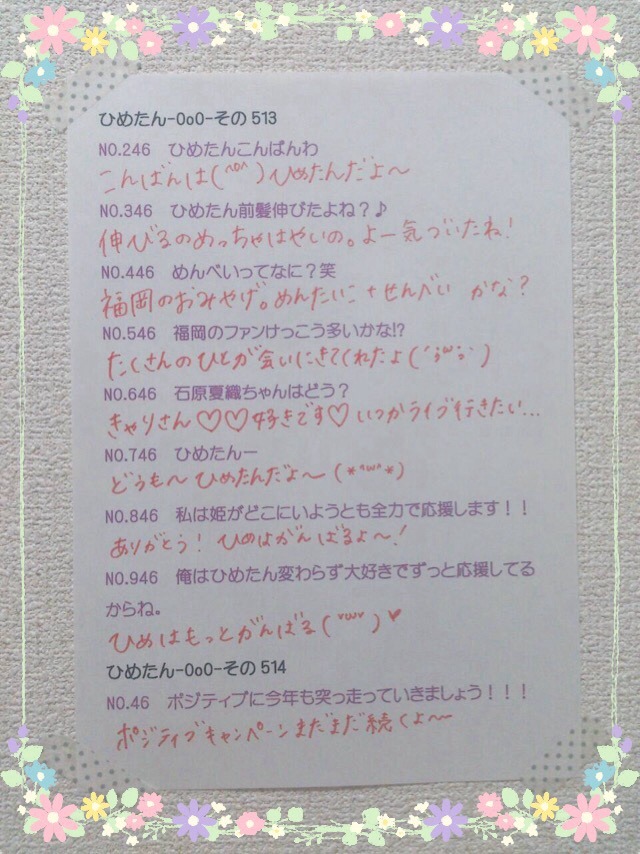 ひめたん-OoO-その513
NO.246 ひめたんこんばんわ
こんばんは(^o^)ひめたんだよ〜
NO.346 ひめたん前髪伸びたよね？♪
伸びるのめっちゃはやいの。よー気づいたね!
NO.446 めんべいってなに？笑
福岡のおみやげ。めんたいこ+せんべい かな?
NO.546 福岡のファンけっこう多いかな!?
たくさんのひとが会いにきてくれたよ(´ω`)
NO.646 石原夏織ちゃんはどう？
きゃりさん♡♡好きです♡いつかライブ行きたい...
NO.746 ひめたんー
どうも〜ひめたんだよ〜(*^ω^*)
NO.846 私は姫がどこにいようとも全力で応援します！！
ありがとう！ひめはがんばるよ〜!
NO.946 俺はひめたん変わらず大好きでずっと応援してる
からね。
ひめはもっとがんばる(^ω^)♥
ひめたん-OoO-その514
NO.46 ポジティブに今年も突っ走っていきましょう！！！
ポジティブキャンペーンまだまだ続くよ〜